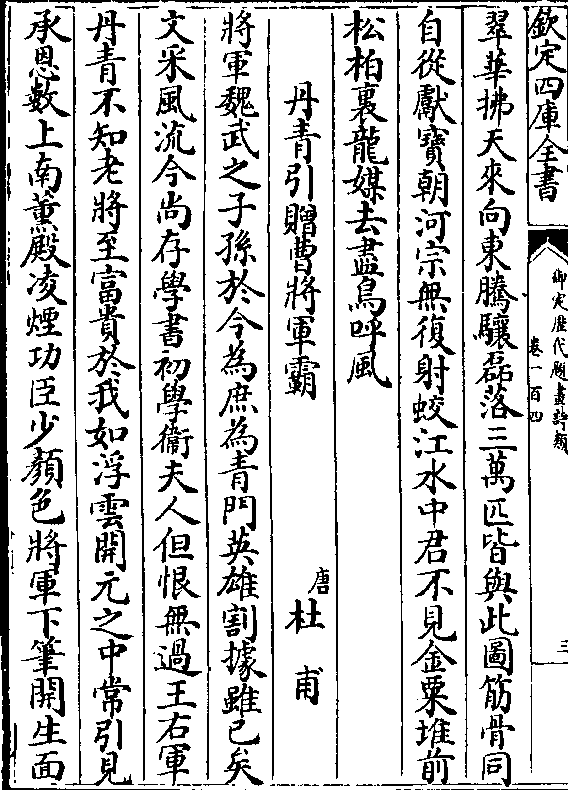 欽定四庫全書
御定歷代題畫詩類
卷一百四
三
翠華拂天來向東騰驤磊落三萬匹皆與此圖筋骨同
自從獻寶朝河宗無復射蛟江水中君不見金粟堆前
松柏裏龍媒去盡鳥呼風
丹青引贈曹將軍霸 唐 杜甫
將軍魏武之子孫於今為庶為青門英雄割據雖已矣
文采風流今尚存學書初學衞夫人但恨無過王右軍
丹青不知老將至富貴於我如浮雲開元之中常引見
承恩數上南薰殿凌煙功臣少顏色將軍下筆開生面